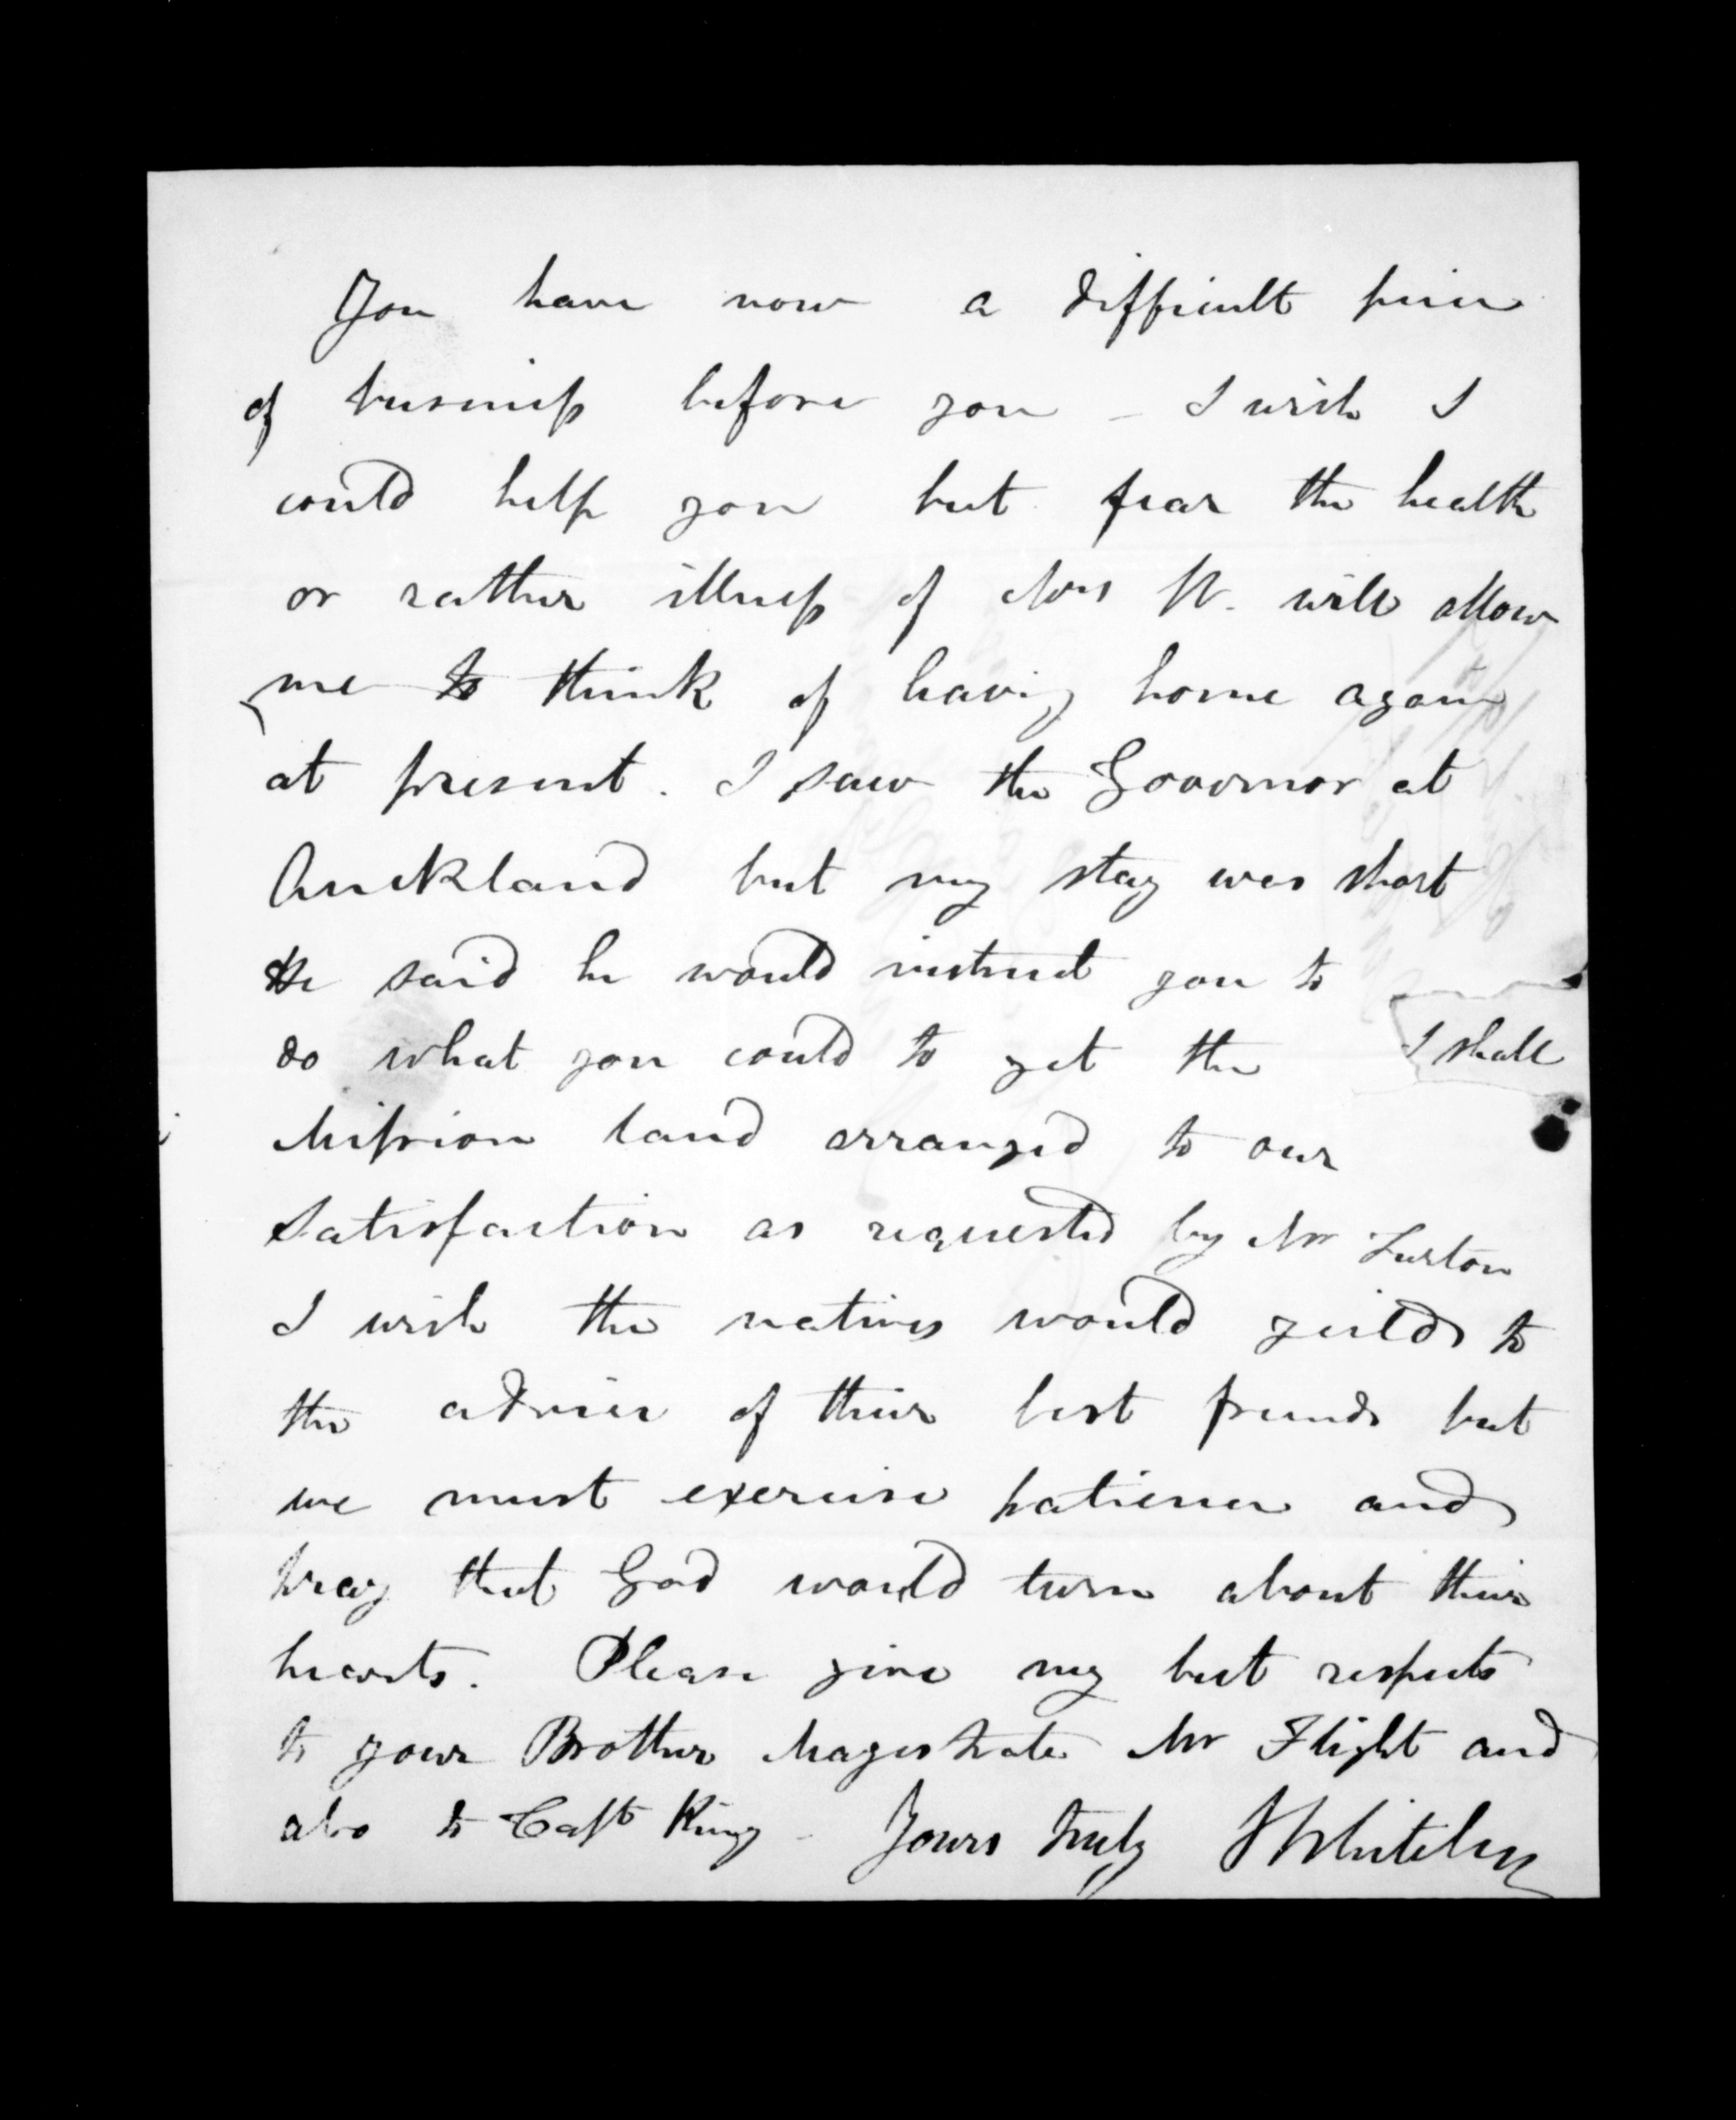 You have now a difficult piece
of business before you – I wish I
could help you but fear the health
or rather illness of Mrs W. will allow
me to think of leaving home again
at present. I saw the Governor at
Auckland but my stay was short
He said he would instruct you to
do what you could to get the
I shall
Mission land arranged to our
satisfaction as requested by Mr Turton
I wish the natives would yeild to
the advice of their best friends but
we must exercise patience and
pray that God would turn about their
hearts. Please give my best respects
to your Brother Magistrate Mr Flight and
also to Capt King – Yours truly J Whiteley